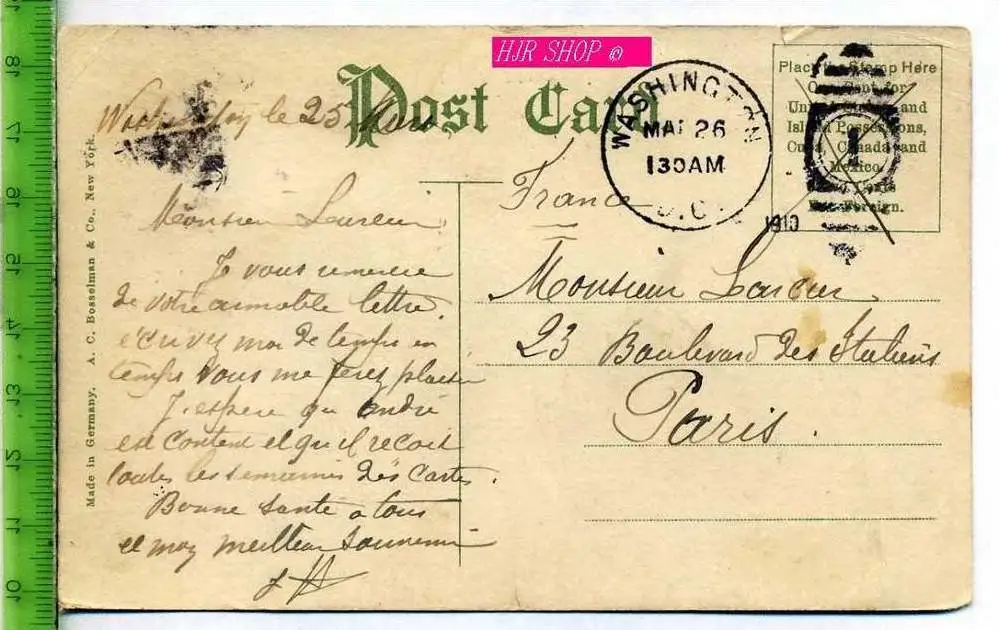 HJR SHOP ©
Post Card
Place the Stamp Here
One Cent for
United States and
Island Possessions,
Cuba, Canada and
Mexico.
Two Cents
For Foreign.
WASHINGTON
MAR 26
130AM
D.C.
1910
1
le 25
Monsieur
Je vous remercie
de votre aimable lettre.
écrivez moi de temps en
temps vous me ferez plaisir
J'espère que André
est content et qu'il reçoit
toutes les semaines des Cartes.
Bonne santé a tous
et moy meilleur souvenir
France
Monsieur
23 Boulevard des Italiens
Paris.
Made in Germany. A. C. Bosselman & Co., New York.
18
17
16
15
14
13
12
11
10